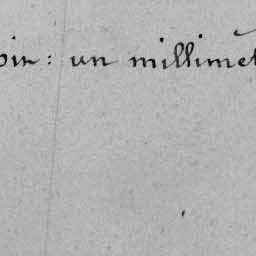 oir : un millimèt